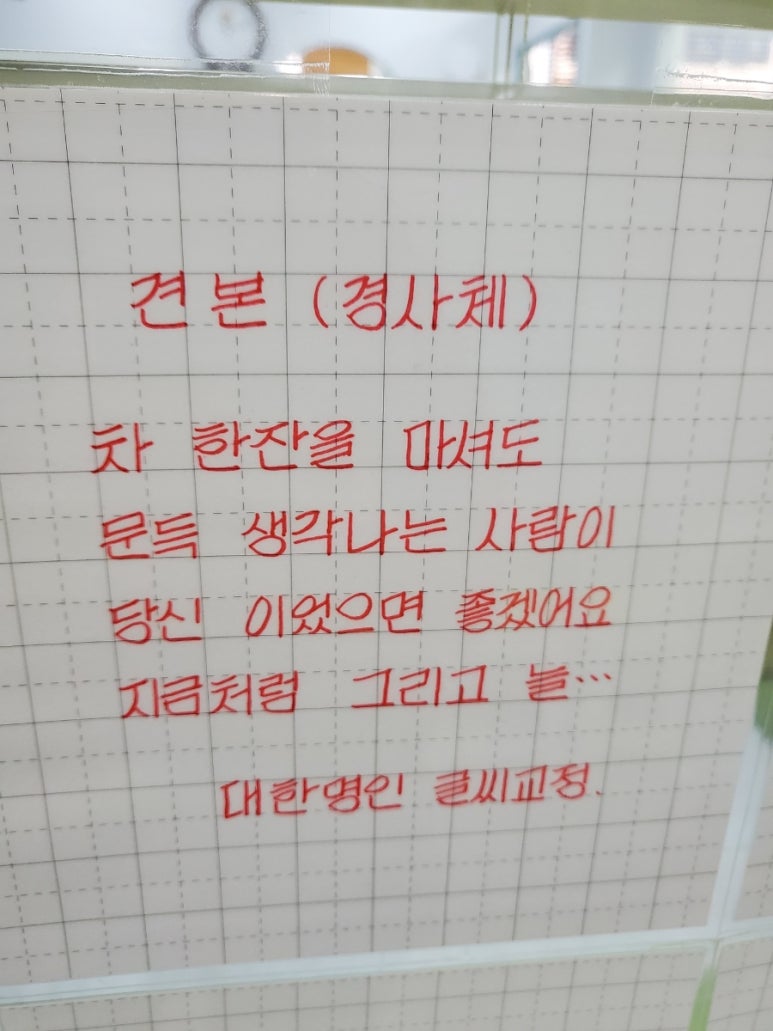 견본 (경사체)
차 한잔을 마셔도
문득 생각나는 사람이
당신 이었으면 좋겠어요
지금처럼 그리고 늘...
대한명인 글씨교정.